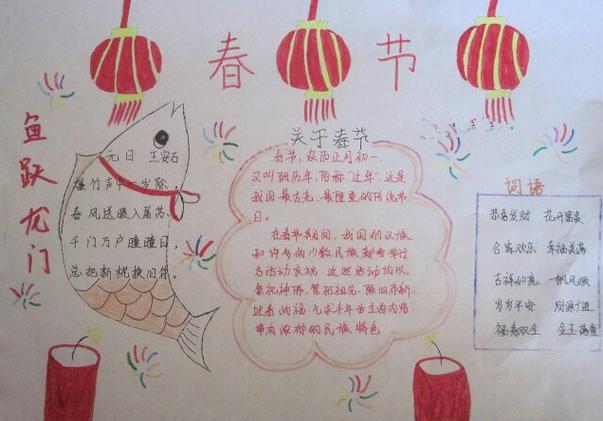 春节
鱼跃龙门
元日 王安石
爆竹声中一岁除,
春风送暖入屠苏,
千门万户曈曈日,
总把新桃换旧符。
关于春节
春节,农历正月初一,
又叫阴历年,俗称“过年”,这是
我国最古老、最隆重的传统节
日。
在春节期间,我国的汉族
和许多的少数民族都要举行
各活动庆祝,这些活动均以
祭祀神佛、祭祀祖先、除旧布新、
迎春纳福、乞求丰年为主要内容,
带有浓郁的民族特色
词语
恭喜发财 花开富贵
合家欢乐 幸福美满
吉祥如意 一帆风顺
岁岁平安 财源广进
福寿双全 金玉满堂